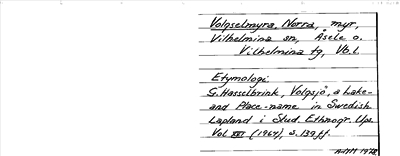 Volgselmyra, Norra, myr,
Vilhelmina sn, Åsele o.
Vilhelmina tg, Vb.l.
Etymologi
G. Hasselbrink, Volgsjö, a Lake-
and Place-name in Swedish
Lapland i Stud. Ethnogr. Ups.
Vol XXI (1964), s. 139 ff.
1978